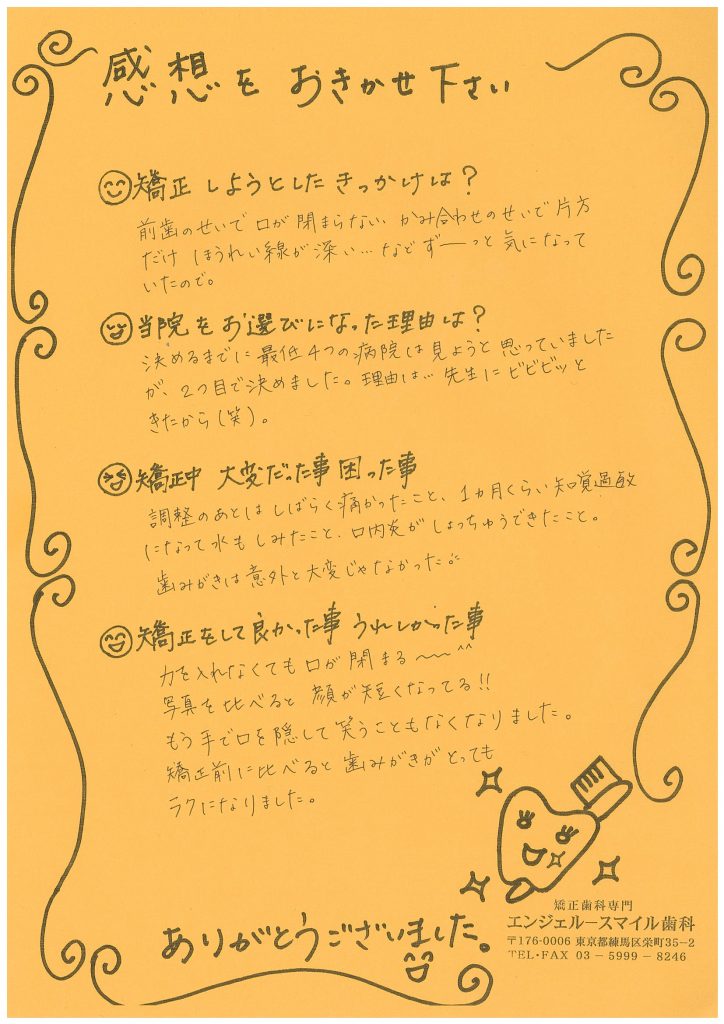 感想を おきかせ下さい
矯正しようとしたきっかけは？
前歯のせいで口が閉まらない、かみ合わせのせいで片方
だけ ほうれい線が深い…などずーっと気になって
いたので。
当院をお選びになった理由は？
決めるまでに最低4つの病院は見ようと思っていました
が、2つ目で決めました。理由は…先生にビビビッと
きたから（笑）。
矯正中 大変だった事 困った事
調整のあとは しばらく痛かったこと、1カ月くらい知覚過敏
になって水もしみたこと、口内炎がしょっちゅうできたこと。
歯みがきは意外と大変じゃなかった
矯正をして良かった事 うれしかった事
力を入れなくても口が閉まる〜〜^^
写真を比べると 顔が短くなってる!!
もう手で口を隠して笑うこともなくなりました。
矯正前に比べると 歯みがきがとっても
ラクになりました。
ありがとうございました。
矯正歯科専門
エンジェルースマイル歯科
〒176-0006 東京都練馬区栄町35−2
TEL・FAX 03 − 5999 − 8246